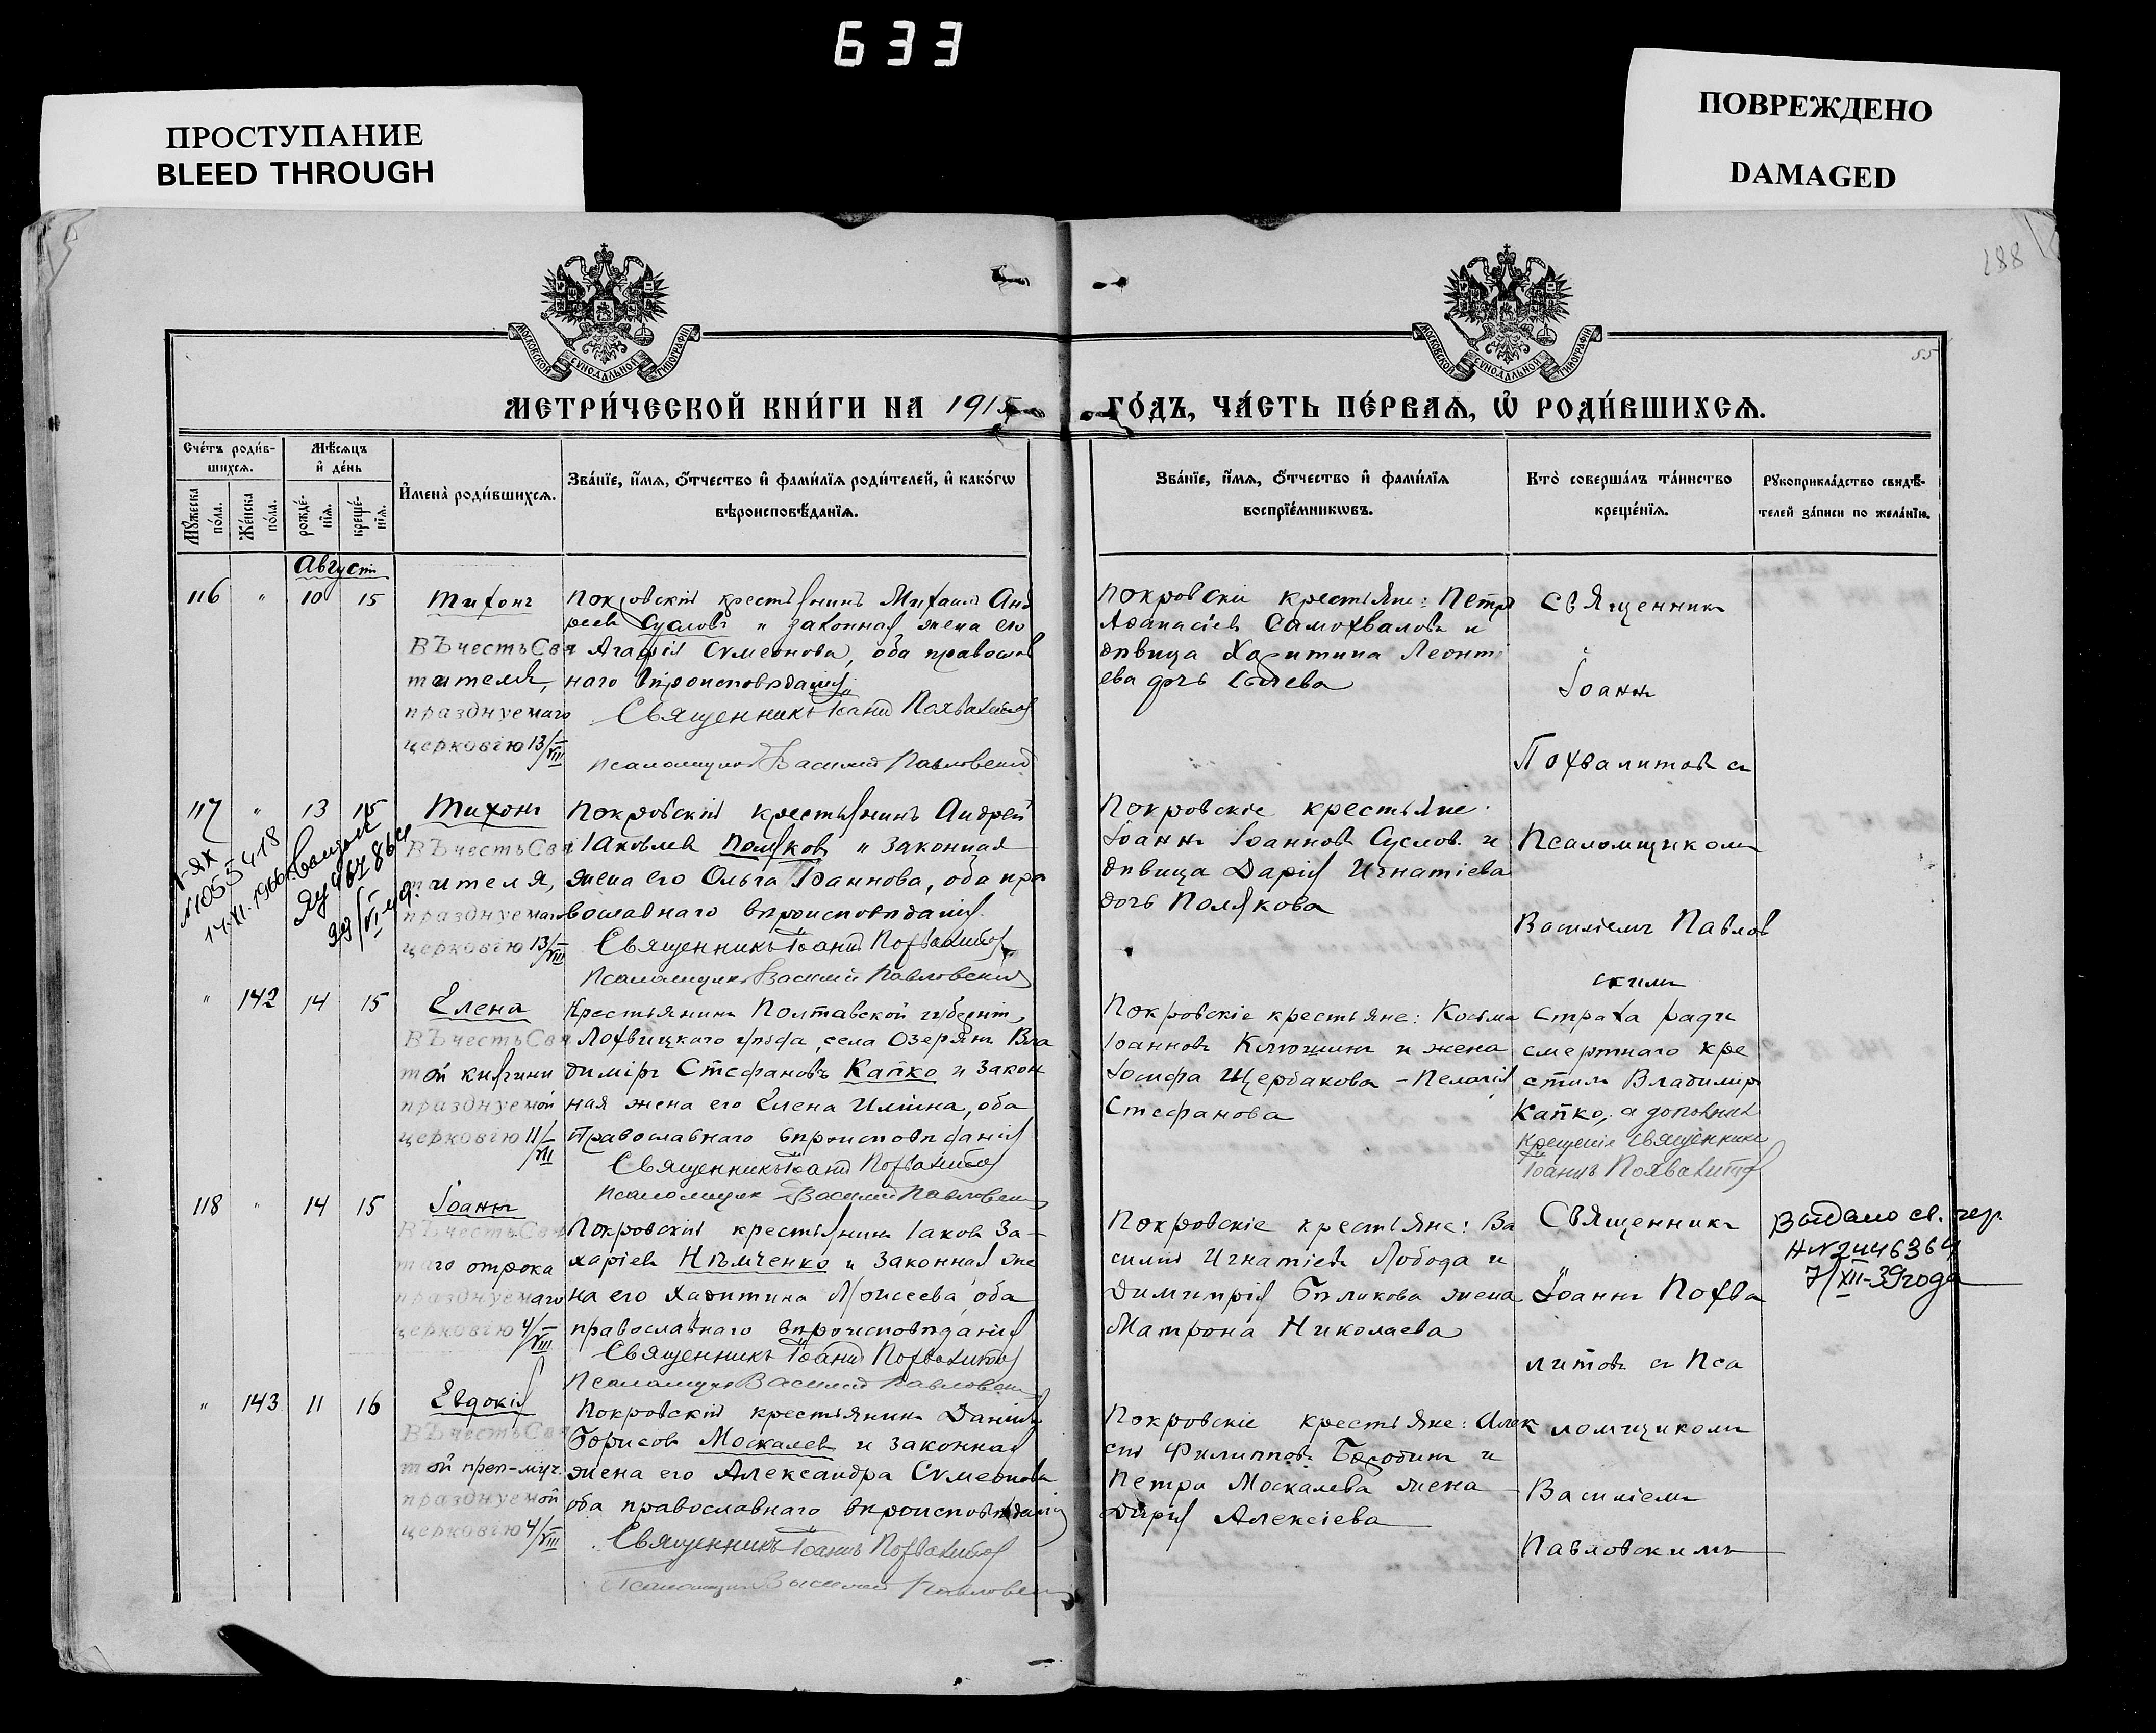 633
ПРОСТУПАНИЕ
BLEED THROUGH
ПОВРЕЖДЕНО
DAMAGED
188
55
МОСКОВСКОЙ СѴНОДАЛЬНОЙ ТИПОГРАФІИ
МОСКОВСКОЙ СѴНОДАЛЬНОЙ ТИПОГРАФІИ
МЕТРИ́ЧЕСКОЙ КНИ́ГИ НА 1915
ГО́ДЪ, ЧА́СТЬ ПЕ́РВАѦ, Ѡ҆ РОДИ́ВШИХСѦ.
Сче́тъ роди́в-
шихсѧ.
Мѣ́сѧцъ
и҆ де́нь
Мꙋ́жеска
по́ла.
Же́нска
по́ла.
рожде́-
нїѧ.
креще́-
нїѧ.
И҆мена̀ роди́вшихсѧ.
Зва́нїе, и҆́мѧ, ѻ҆́тчество и҆ фами́лїѧ роди́телей, и҆ како́гѡ
вѣроисповѣ́данїѧ.
Зва́нїе, и҆́мѧ, ѻ҆́тчество и҆ фами́лїѧ
воспрїе́мникѡвъ.
Кто̀ соверша́лъ та́инство
креще́нїѧ.
Рꙋкоприкла́дство свидѣ́-
телей за́писи по жела́нїю.
Августъ
116 " 10 15
Тихонъ
ВЪ честь Свя
тителя,
празднуемаго
церковію 13/VIII
Покровскій крестьянинъ Михаилъ Анд
реевъ Сусловъ и законная жена его
Агафія Сѵмеонова, оба православ
наго вѣроисповѣданія.
Священникъ Іоаннъ Похвалитовъ
Псаломщикъ Василій Павловскій
Покровскіе крестьяне: Петръ
Аѳанасіевъ Самохваловъ и
дѣвица Харитина Леонтi
ева дочь
Священникъ
Іоаннъ
Похвалитовъ съ
117 " 13 15
Тихонъ
ВЪ честь Свя
тителя,
празднуемаго
церковію 13/VIII
Покровскій крестьянинъ Андрей
Іаковлевъ Поляковъ и законная
жена его Ольга Іоаннова, оба пра
вославнаго вѣроисповѣданія.
Священникъ Іоаннъ Похвалитовъ
Псаломщикъ Василій Павловскій
1-ЯК
N 1053418
14.XI.1966
ЯУ 467864
29/VI-49.
Покровскіе крестьяне:
Іоаннъ Іоанновъ Сусловъ и
дѣвица Дарія Игнатіева
дочь Полякова
Псаломщикомъ
Василіемъ Павлов
скимъ
" 142 14 15
Елена
ВЪ честь Свя
той княгини
празднуемой
церковію 11/VII
Крестьянинъ Полтавской губерніи,
Лохвицкаго уѣзда, села Озерянъ Вла
димiръ Стефановъ Капко и закон
ная жена его Елена Иліина, оба
Православнаго вѣроисповѣданія
Священникъ Іоаннъ Похвалитовъ
Псаломщикъ Василій Павловскій
Покровскіе крестьяне: Косьма
Іоанновъ и жена
Іосифа Щербакова - Пелагія
Стефанова
Страха ради
смертнаго кре
стилъ Владиміръ
Капко, а дополнилъ
крещеніе священникъ
Іоаннъ Похвалитовъ
118 " 14 15
Іоаннъ
ВЪ честь Свя
таго отрока
празднуемаго
церковію 4/VIII
Покровскій крестьянинъ Іаковъ За-
харіевъ Нѣмченко и законная же
на его Харитина Моисеева, оба
православнаго вѣроисповѣданія
Священникъ Іоаннъ Похвалитовъ
Псаломщикъ Василій Павловскій
Покровскіе крестьяне: Ва
силій Игнатіевъ Лобода и
Димитрія Бѣликова жена
Матрона Николаева
Священникъ
Іоаннъ Похва
литовъ съ Пса
Выдано св.
N 2446364
7/XII-39 года
" 143 11 16
Евдокія
ВЪ честь Свя
той преп-муч.
празднуемой
церковію 4/VIII
Покровскій крестьянинъ Даніилъ
Борисовъ Москалевъ и законная
жена его Александра Сѵмеонова
оба православнаго вѣроисповѣданія
Священникъ Іоаннъ Похвалитовъ
Псаломщикъ Василій Павловскій
Покровскіе крестьяне: Алек
сій Филипповъ Бородинъ и
Петра Москалева жена
Дарія Алексіева
ломщикомъ
Василіемъ
Павловскимъ